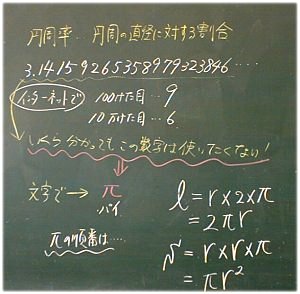 円周率…円周の直径に対する割合
3.14159265358979323846……
インターネットで
100けた目…9
10万けた目…6
いくら分かってもこの数字は使いたくない!
文字で→ π
パイ
πの順番は…
l = r×2×π
= 2πr
S = r×r×π
= πr²